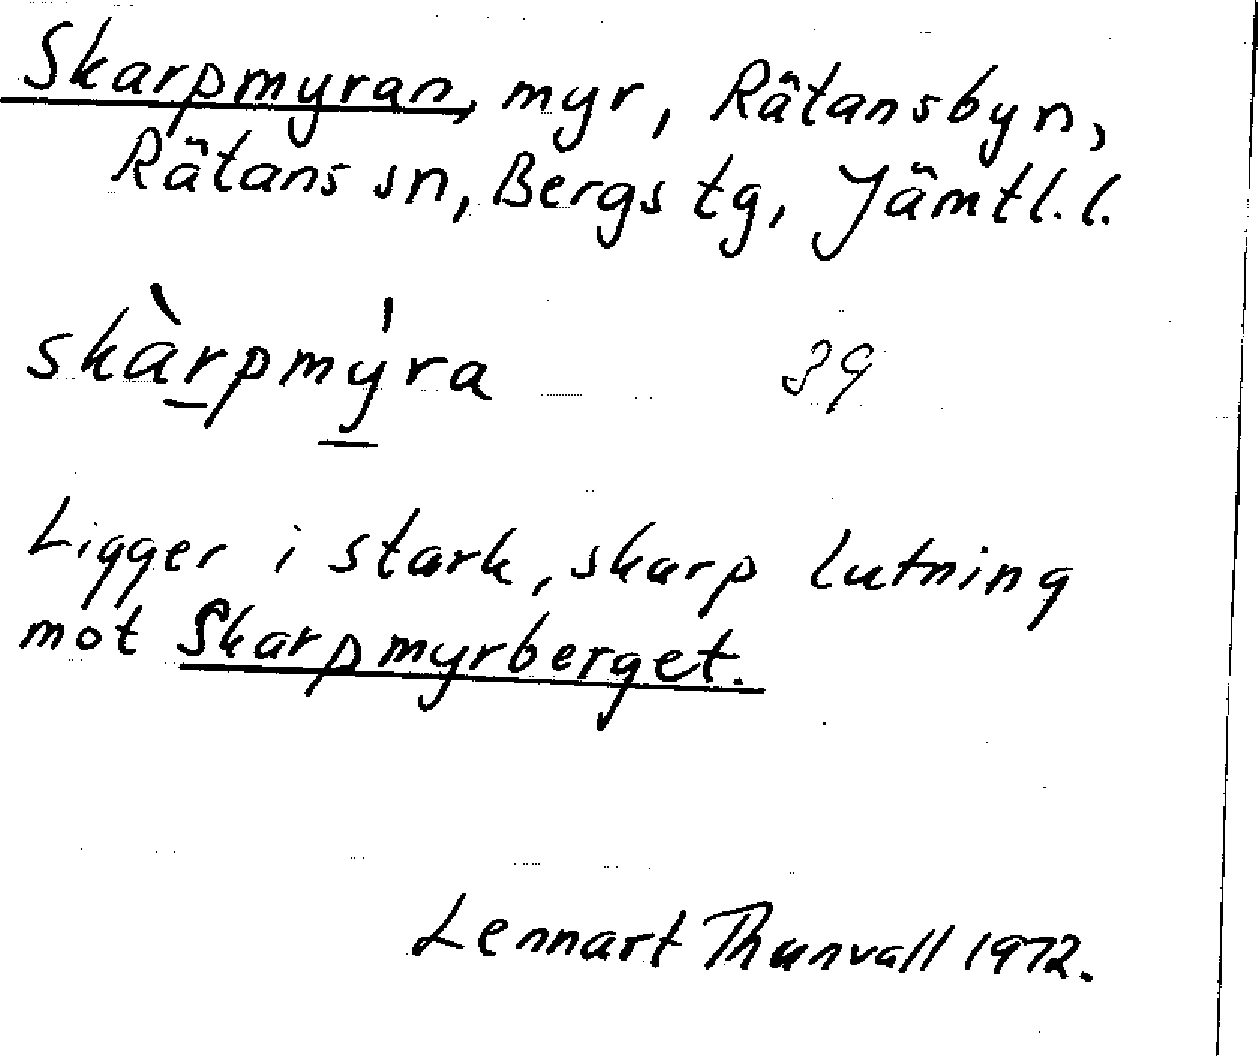 Skarpmyran, myr, Rätansbyn,
Rätans sn, Bergs tg, Jämtl. l.
skàrpmýra 39
Ligger i stark, skarp lutning
mot Skarpmyrberget.
Lennart Thunvall 1972.